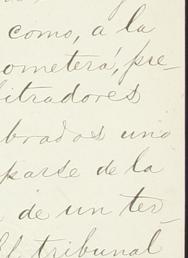 como, a la
ometerá, pre-
itradores
brados uno
parse de la
de un ter-
El tribunal